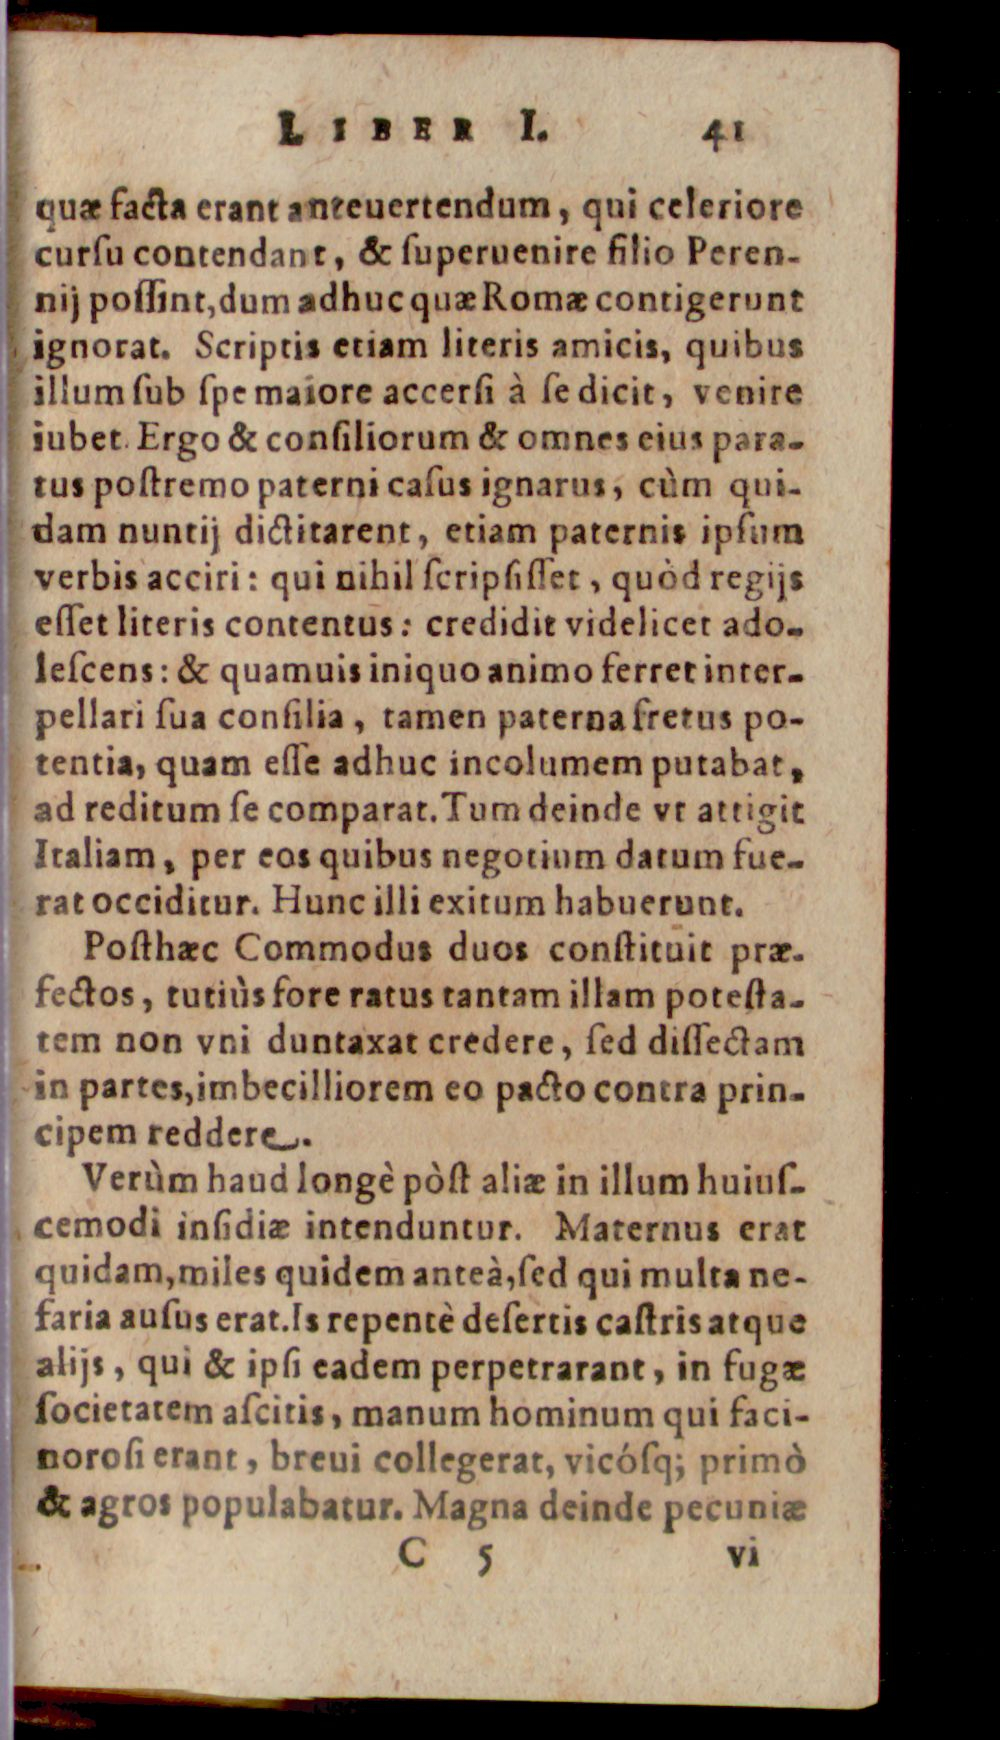 LIBER I. 41
quæ facta erant anteuertendum, qui celeriore
curſu contendant, & ſuperuenire filio Peren-
nij poſſint, dum adhuc quæ Romæ contigerunt
ignorat. Scriptis etiam literis amicis, quibus
illum ſub ſpe maiore accerſi à ſe dicit, venire
iubet. Ergo & conſiliorum & omnes eius para-
tus poſtremo paterni caſus ignarus, cùm qui-
dam nuntij dictitarent, etiam paternis ipſum
verbis acciri: qui nihil ſcripſiſſet, quòd regijs
eſſet literis contentus: credidit videlicet ado-
leſcens: & quamuis iniquo animo ferret inter-
pellari ſua conſilia, tamen paterna fretus po-
tentia, quam eſſe adhuc incolumem putabat,
ad reditum ſe comparat. Tum deinde vt attigit
Italiam, per eos quibus negotium datum fue-
rat occiditur. Hunc illi exitum habuerunt.
Poſthæc Commodus duos conſtituit præ-
fectos, tutiùs fore ratus tantam illam poteſta-
tem non vni duntaxat credere, ſed diſſectam
in partes, imbecilliorem eo pacto contra prin-
cipem reddere.
Verùm haud longè pòſt aliæ in illum huiuſ-
cemodi inſidiæ intenduntur. Maternus erat
quidam, miles quidem anteà, ſed qui multa ne-
faria auſus erat. Is repentè deſertis caſtris atque
alijs, qui & ipſi eadem perpetrarant, in fugæ
ſocietatem aſcitis, manum hominum qui faci-
noroſi erant, breui collegerat, vicóſq; primò
& agros populabatur. Magna deinde pecuniæ
C 5 vi